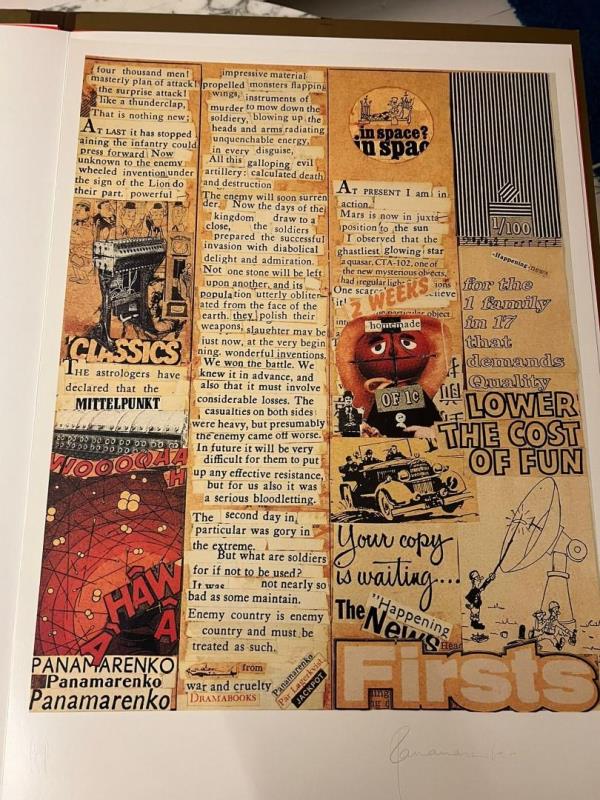 four thousand men!
masterly plan of attack!
the surprise attack!
like a thunderclap,
That is nothing new;
AT LAST it has stopped
aining the infantry could
press forward Now
unknown to the enemy
wheeled invention under
the sign of the Lion do
their part. powerful
CLASSICS
THE astrologers have
declared that the
MITTELPUNKT
WOOOWHA
H
HAW
A
A
PANAMARENKO
Panamarenko
Panamarenko
impressive material
propelled monsters flapping
wings, instruments of
murder to mow down the
soldiery, blowing up the
heads and arms radiating
unquenchable energy,
in every disguise,
All this galloping evil
artillery: calculated death
and destruction
The enemy will soon surren
der. Now the days of the
kingdom draw to a
close, the soldiers
prepared the successful
invasion with diabolical
delight and admiration.
Not one stone will be left
upon another, and its
population utterly obliter
ated from the face of the
earth. they polish their
weapons, slaughter may be
just now, at the very begin
ning. wonderful inventions.
We won the battle. We
knew it in advance, and
also that it must involve
considerable losses. The
casualties on both sides
were heavy, but presumably
the enemy came off worse.
In future it will be very
difficult for them to put
up any effective resistance,
but for us also it was
a serious bloodletting.
The second day in
particular was gory in
the extreme.
But what are soldiers
for if not to be used?
It was not nearly so
bad as some maintain.
Enemy country is enemy
country and must be
treated as such.
from
war and cruelty
DRAMABOOKS
Panamarenko
Par Lagerkvist
JACKPOT
in space?
in spac
AT PRESENT I am in
action.
Mars is now in juxta
position to the sun
I observed that the
ghastliest glowing star
a quasar, CTA-102, one of
the new mysterious objects,
had irregular light ions
One scarce
it!
2 WEEKS
homemade
OF 1c
Your copy
is waiting...
The "Happening
News
Head
Firsts
1/100
-Happening-news
for the
1 family
in 17
that
demands
Quality
LOWER
THE COST
OF FUN
Panamarenko